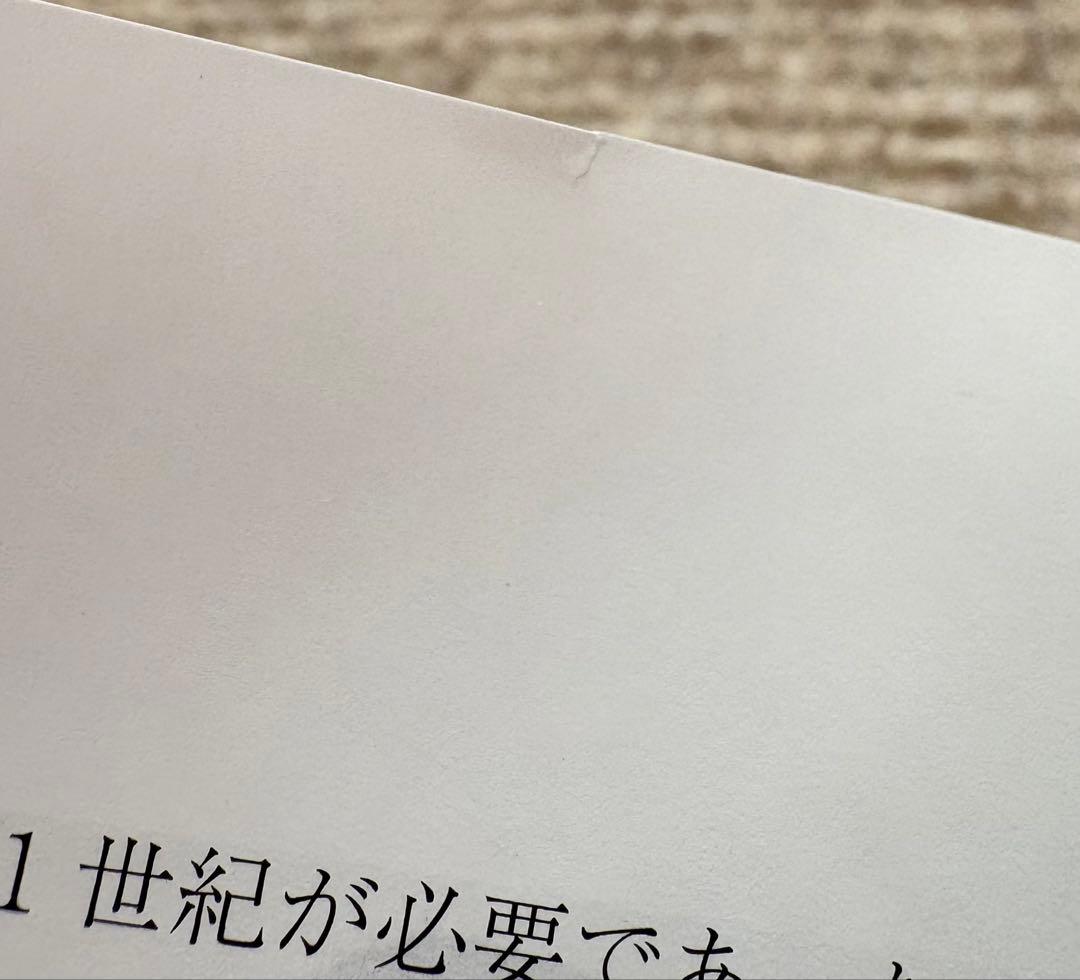 1 世紀が必要であ